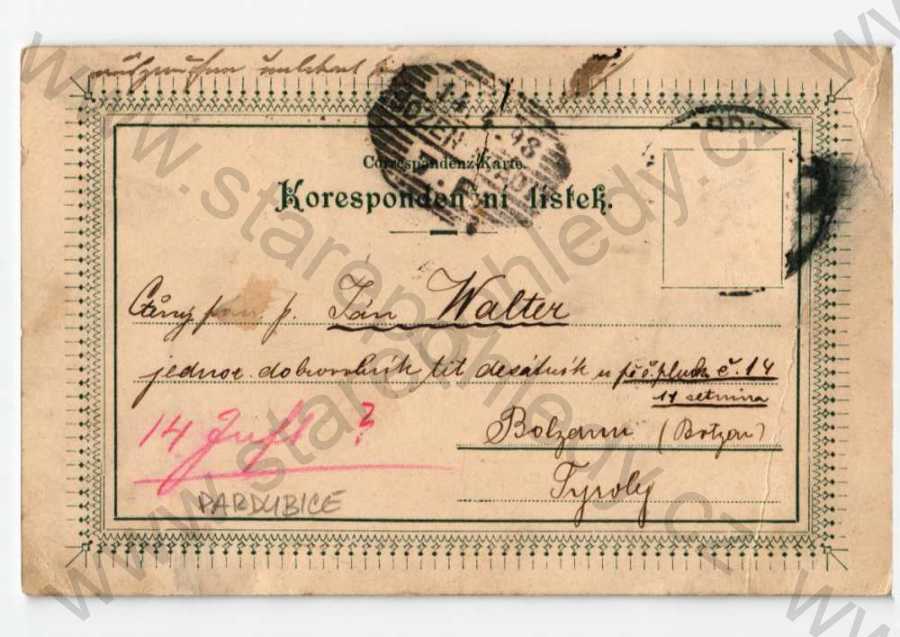 14
BOZEN
98
Correspondenz-Karte.
Korespondenční lístek.
Ctěný pan p. Ján Walter
jednor. dobrovolník tit desátník u pěš. pluk č. 14
11 setnina
Bolzanu (Botzen)
14 Inft ?
Tyroly
PARDUBICE
www.starepohledy.cz